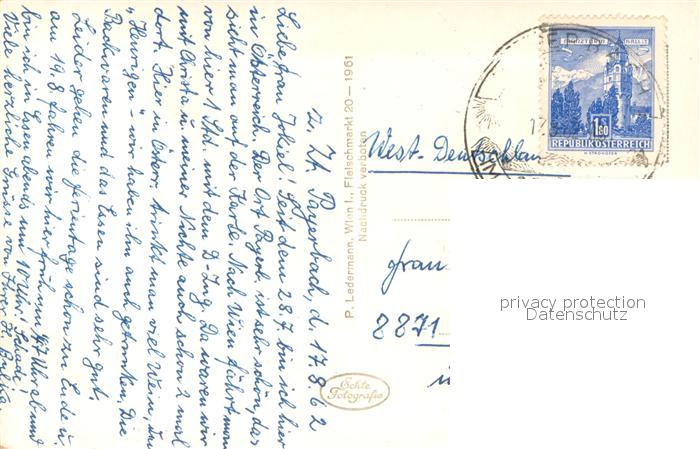 z. Zt. Payerbach, d. 17.8.62
Liebe Frau Jeksel! Seit dem 28.7. bin ich hier
in Österreich. Der Ort Payerb. ist sehr schön, das
sieht man auf der Karte. Nach Wien fährt man
von hier 1 Std. mit dem D-Zug. Da waren wir
mit Christa u. meiner Nichte auch schon 2 mal
dort. Hier in Österr. trinkt man viel Wein, den
"Heurigen" - wir haben ihn auch getrunken. Die
Backwaren und das Essen sind sehr gut.
Leider gehen die Ferientage schon zu Ende u.
am 19.8. fahren wir hier früh um 1/2 7 Uhr ab und
bin ich in Essen abends um 10 Uhr! Schade!
Viele herzliche Grüsse von Ihrer
P. Ledermann, Wien I., Fleischmarkt 20 – 1961
Nachdruck verboten
Echte
Fotografie
1.80
REPUBLIK ÖSTERREICH
West-Deutschlan
Frau
8871
privacy protection
Datenschutz